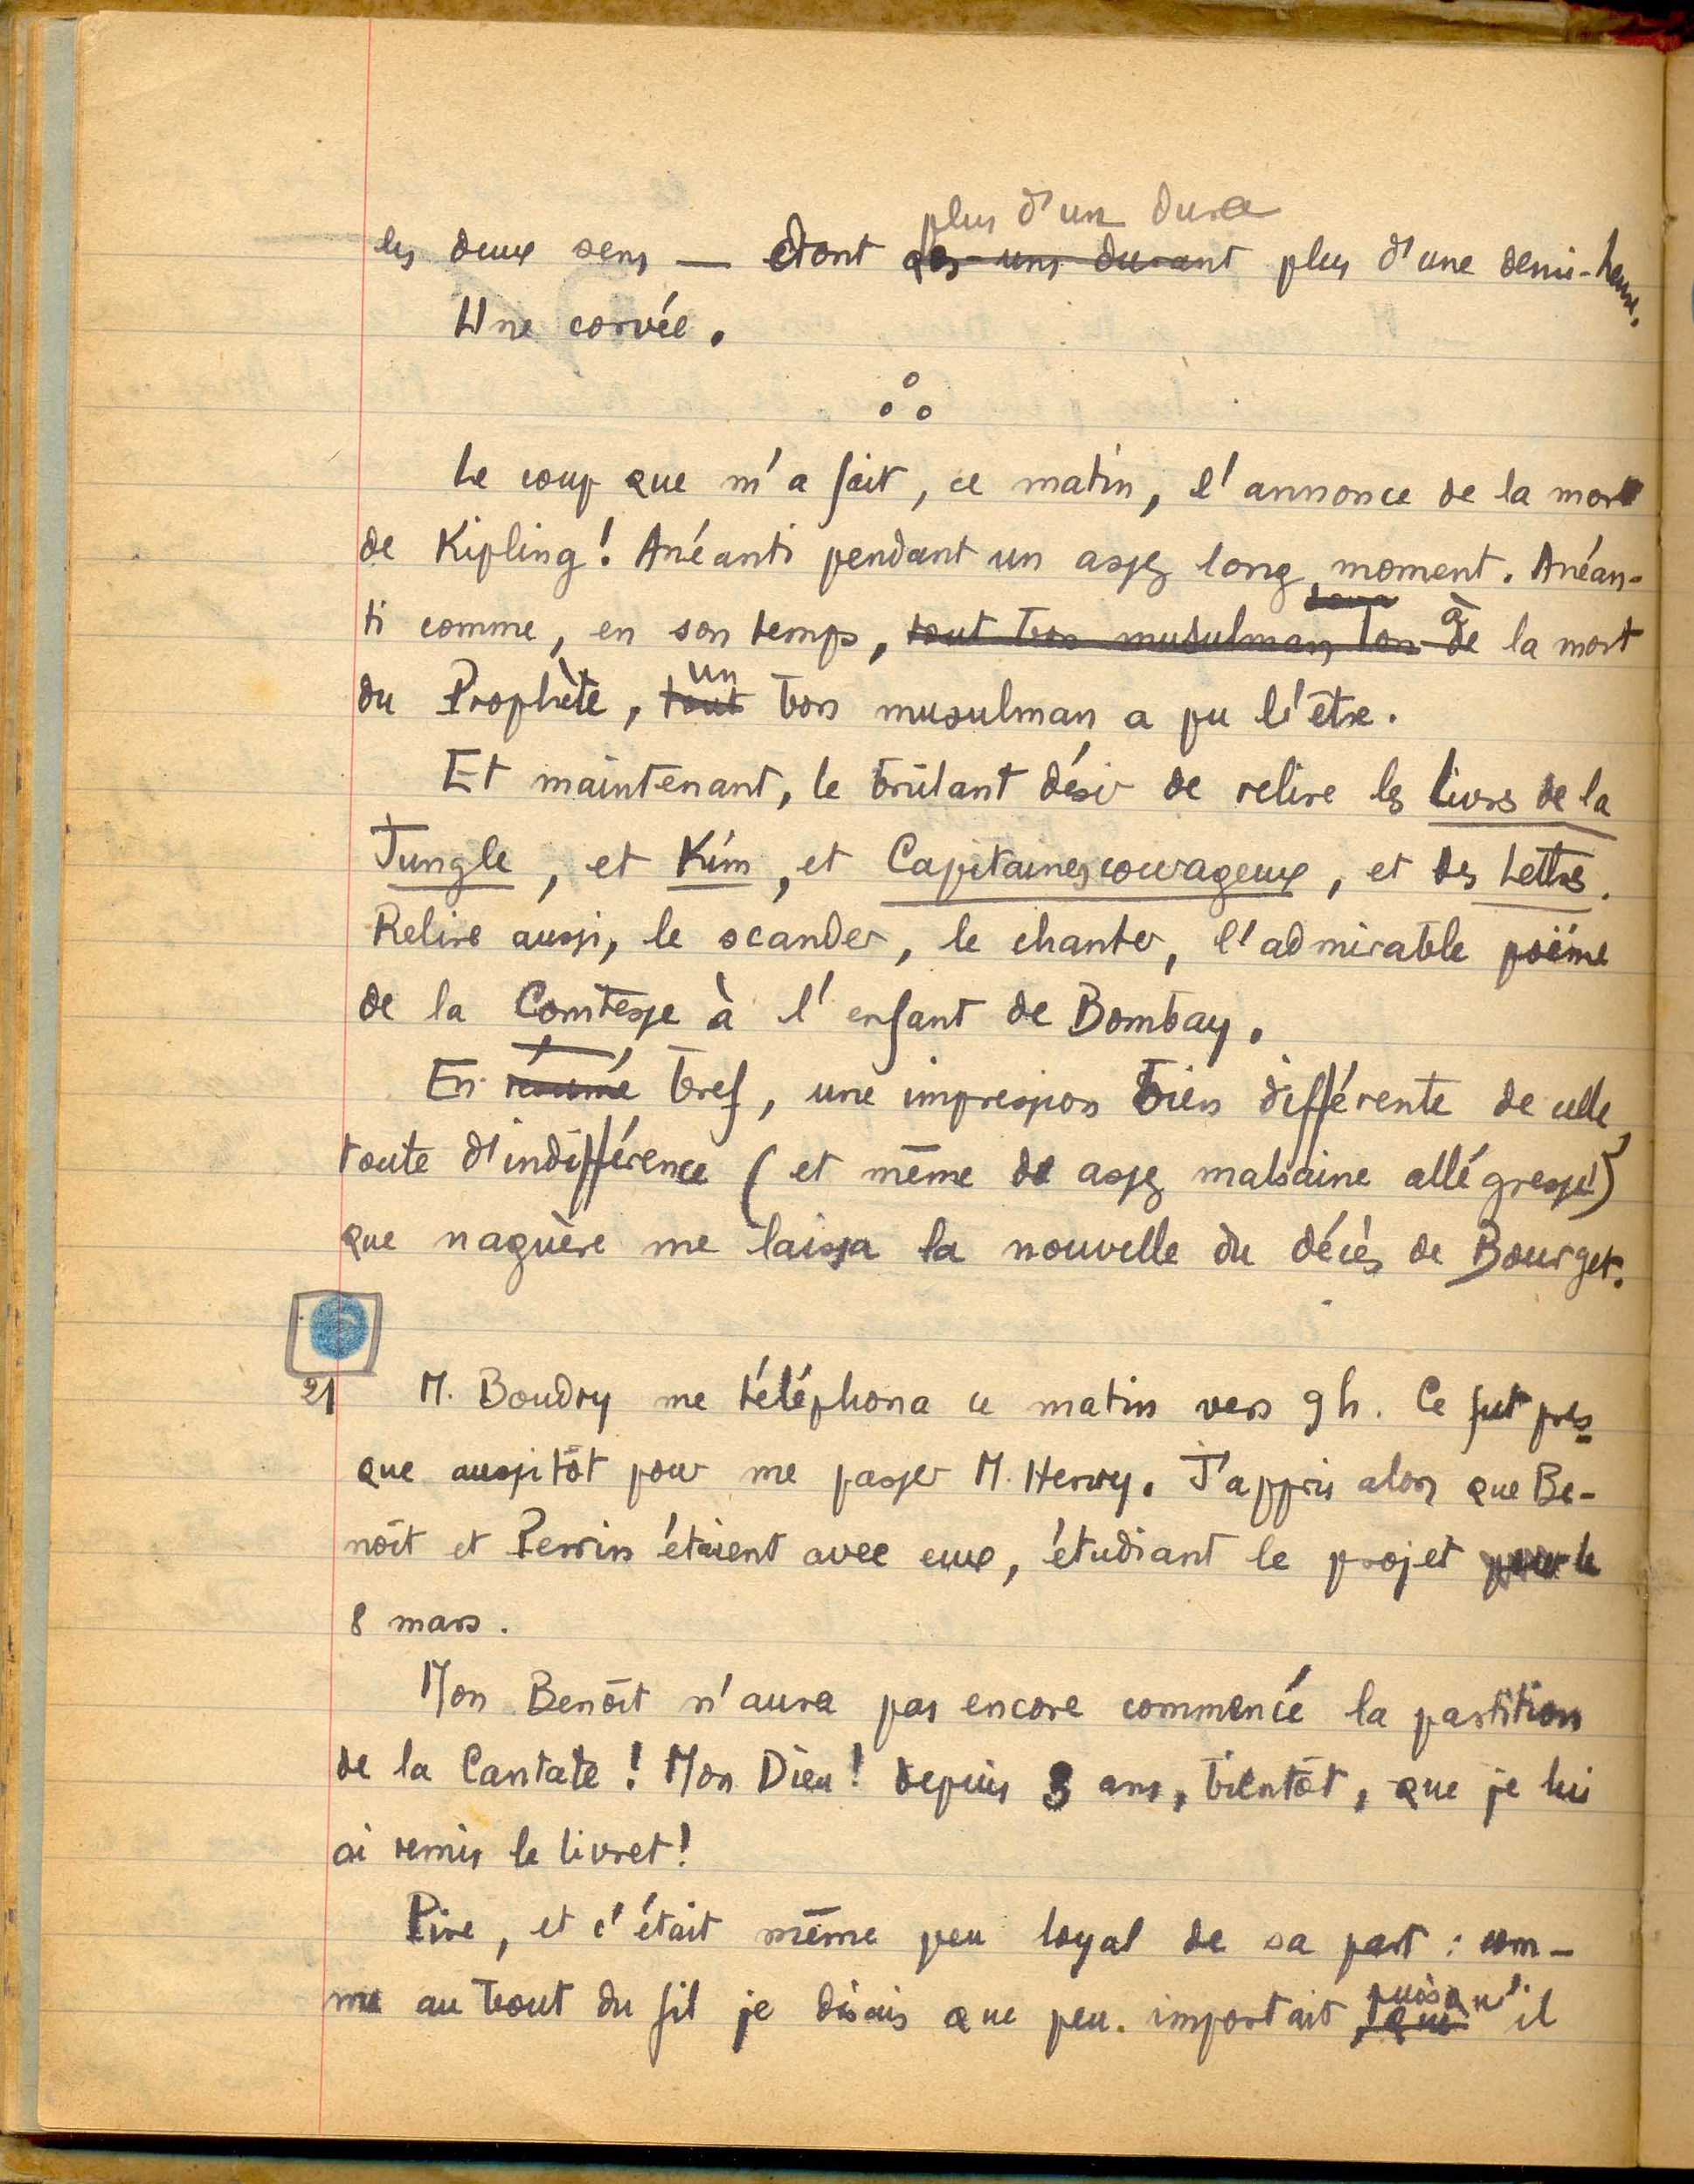 plus d'un dura
les deux sens — dont des uns durant plus d'une demi-heure.
Une corvée.
Le coup que m'a fait, ce matin, l'annonce de la mort
de Kipling ! Anéanti pendant un assez long moment. Anéan-
ti comme, en son temps, tout bon musulman lors de à la mort
du Prophète, tout un bon musulman a pu l'être.
Et maintenant, le brûlant désir de relire les Livres de la
Jungle, et Kim, et Capitaines courageux, et des Lettres.
Relire aussi, le scander, le chanter, l'admirable poëme
de la Comtesse à l'enfant de Bombay.
En résumé bref, une impression bien différente de celle,
toute d'indifférence (et même de assez malsaine allégresse !)
que naguère me laissa la nouvelle du décès de Bourget.
21 M. Boudry me téléphona ce matin vers 9 h. Ce fut pres-
que aussitôt pour me passer M. Henry. J'appris alors que Be-
noît et Perrin étaient avec eux, étudiant le projet pour le
8 mars.
Mon Benoît n'aura pas encore commencé la partition
de la Cantate ! Mon Dieu ! depuis 3 ans, bientôt, que je lui
ai remis le livret !
Pire, et c'était même peu loyal de sa part : com-
me au bout du fil je disais que peu importait, que puisqu'il